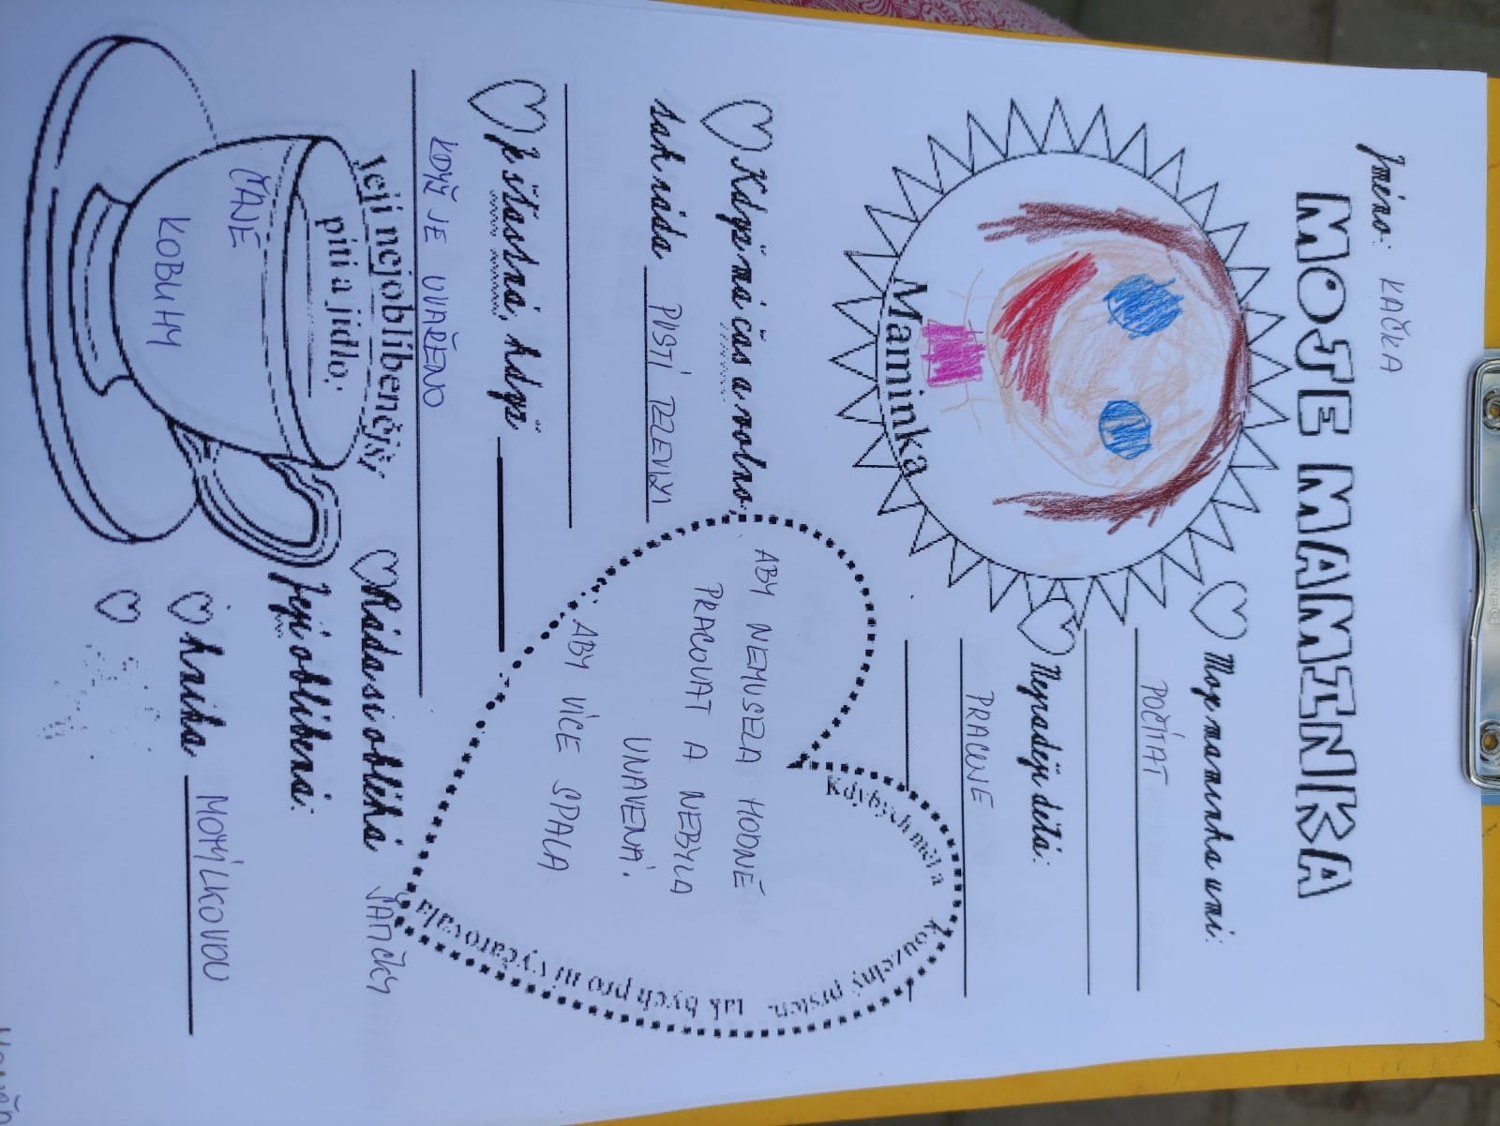 Jméno: KAČKA
MOJE MAMINKA
Maminka
Moje maminka umí:
POČÍTAT
Nejraději dělá:
PRACUJE
Když má čas a volno,
tak ráda PUSTÍ TELEVIZI
Kdybych měla kouzelný prsten, tak bych pro ni vyčarovala
ABY NEMUSELA HODNĚ
PRACOVAT A NEBYLA
UNAVENÁ.
ABY VÍCE SPALA
Je šťastná, když
KDYŽ JE UVAŘENO
Její nejoblíbenější
pití a jídlo:
ČAJE
Ráda si obléká ŠATIČKY
Její oblíbená:
kniha MOTÝLKOVOU